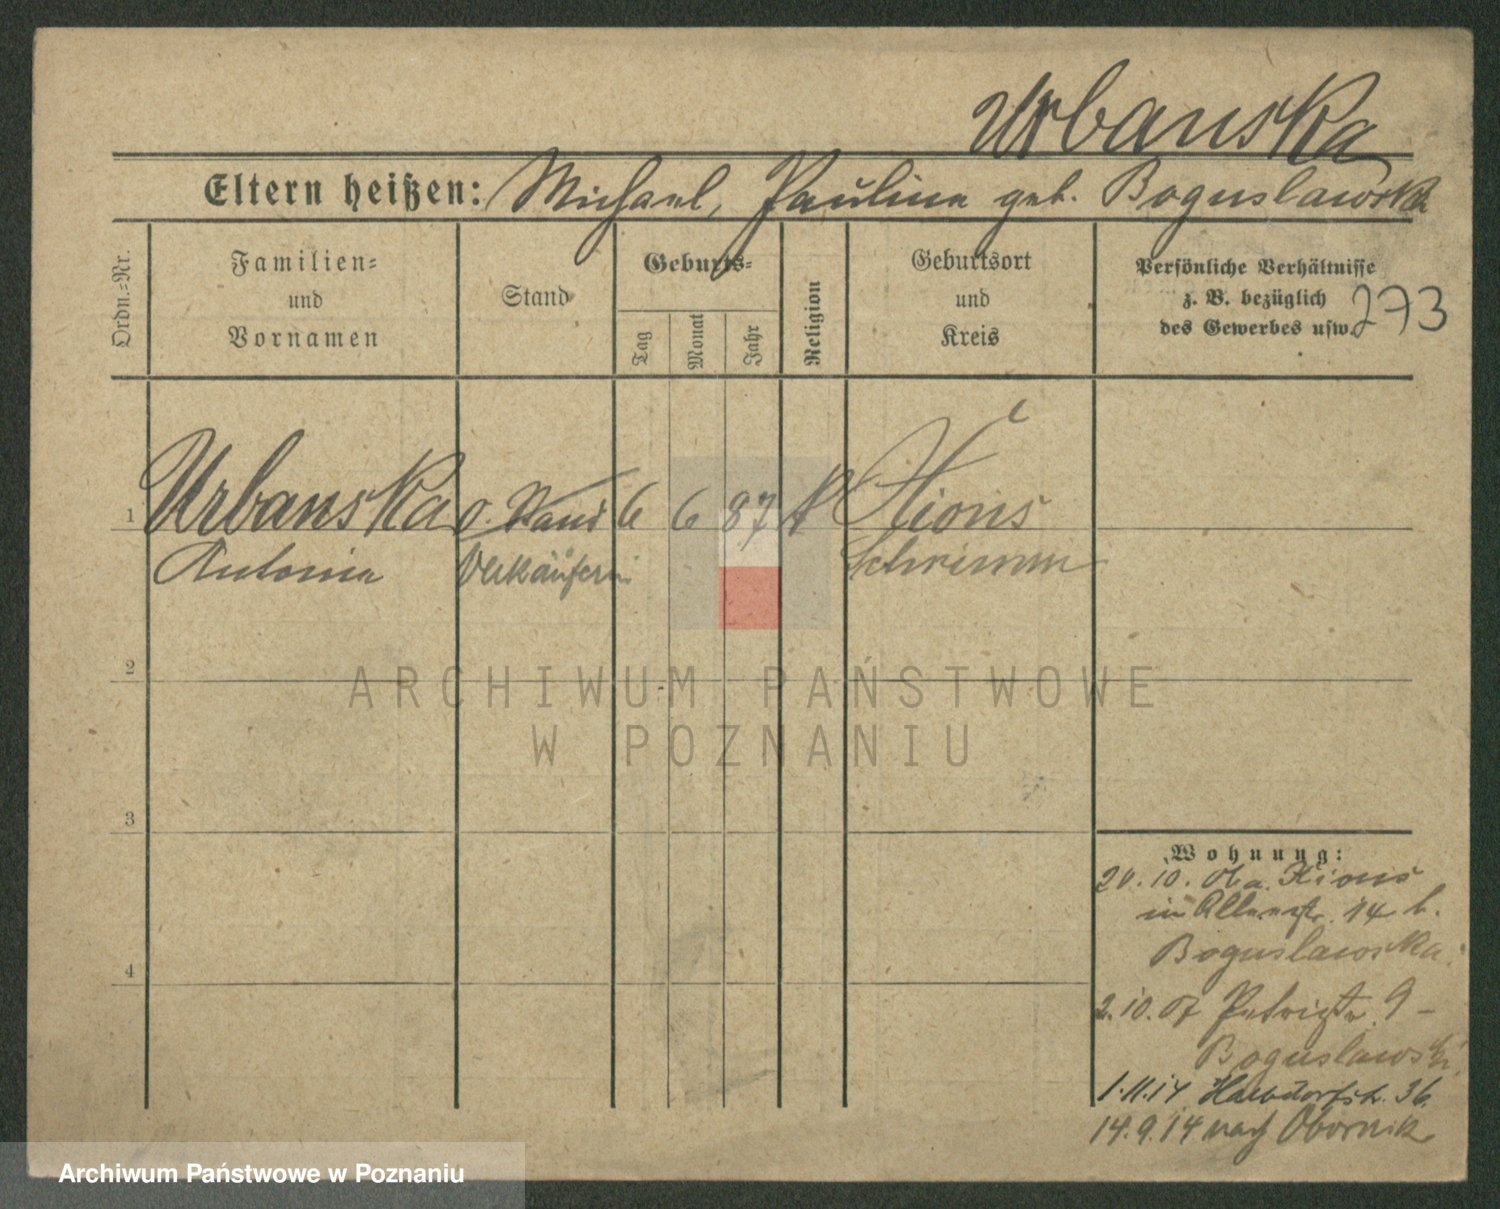 Urbanska
Eltern heißen: Michael, Paulina geb. Boguslawska
Ordn.-Nr.
Familien-
und
Vornamen
Stand
Geburts-
Tag
Monat
Jahr
Religion
Geburtsort
und
Kreis
Persönliche Verhältnisse
z. B. bezüglich
des Gewerbes usw.
273
1
Urbanska
o. Stand
6
6
87
K
Xions
Antonia
Verkäuferin
Schrimm
2
ARCHIWUM PAŃSTWOWE
W POZNANIU
3
Wohnung:
20. 10. 06 a. Xions
in 14 b.
Boguslawska.
4
2. 10. 07 Petristr. 9 –
Boguslawski.
1. 11. 14 Halbdorfstr. 36.
14. 9. 14 nach Obornik
Archiwum Państwowe w Poznaniu